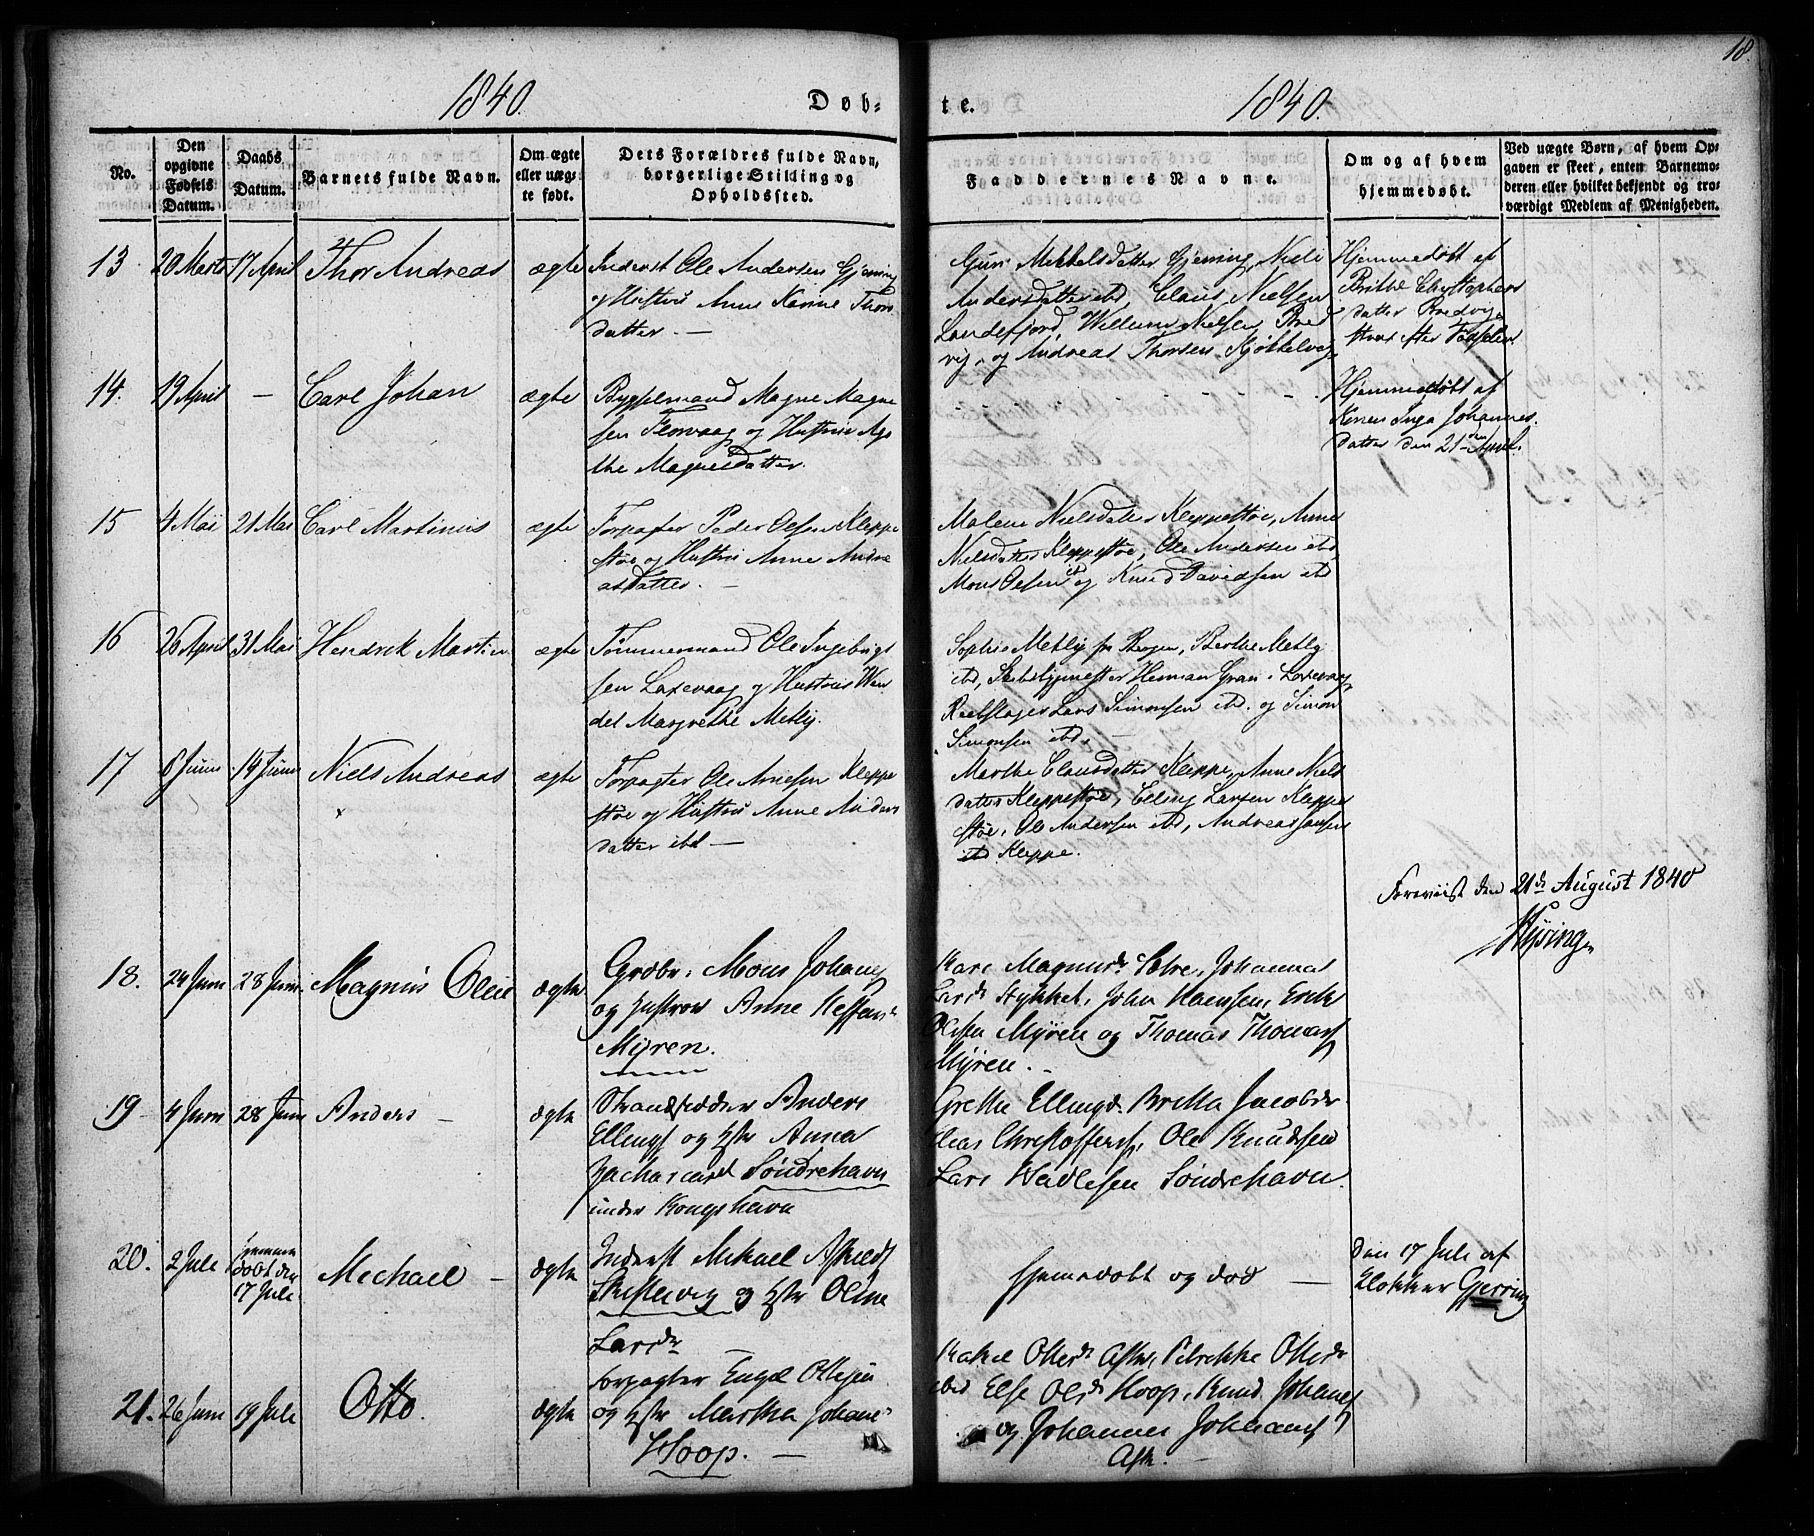 18.
1840.
Døb-
te.
1840.
No.
Den opgivne Fødsels Datum.
Daabs Datum.
Barnets fulde Navn.
Om ægte eller uægte født.
Dets Forældres fulde Navn, borgerlige Stilling og Opholdssted.
Faddernes Navne.
Om og af hvem hjemmedøbt.
Ved uægte Børn, af hvem Opgaven er skeet, enten Barnemoderen eller hvilket bekjendt og troværdigt Medlem af Menigheden.
13 20 Marts 17 April Thor Andreas ægte Inderst Ole Andersen Gjerring
og Hustru Anne Karine Thors
datter. —
Guri Mikkelsdatter Gjerring, Nieli
Andersdatter ibd, Claus Nielsen
Landefjord, Willum Nielsen Bred
vig, og Andreas Thorsen Kjøkkelvig
Hjemmedøbt af
Brithe Christophers
datter Bredvig
strax efter Fødselen.
14. 19 April — Carl Johan ægte Bygselmand Magne Magne
sen Florvaag og Hustru Ag
the Magnesdatter.
Hjemmedøbt af
Karen Inga Johannes
datter den 21de April.
15 4 Mai 21 Mai Carl Martinus ægte Forpagter Peder Olsen Kleppe
støe og Hustru Anne Andre
asdatter. —
Malene Nielsdatter Kleppestøe, Anne
Nielsdatter Kleppestøe, Ole Andersen ibd
Mons Olsen ibd og Knud Davidsen ibd
16 26 April 31 Mai Hendrik Martin ægte Tømmermand Ole Ingebrigt
sen Laxevaag og Hustru Wen
del Margrethe Metlig.
Sophie Metlig fr Bergen, Berthe Metlig
ibd, Skibsbygmester Herman Gran i Laxevaag,
Reebslager Lars Simonsen ibd. og Simon
Simonsen ibd. —
17 8 Juni 14 Juni Niels Andreas ægte Forpagter Ole Arnesen Kleppe
støe og Hustru Anne Anders
datter ibd —
Marthe Clausdatter Kleppe, Anne Niels
datter Kleppestøe, Elling Larsen Kleppe
støe, Ole Andersen ibd, Andreas Jansen
ibd Kleppe.
Foreviist den 21de August 1840
18. 24 Juni 28 Juni Magnus Oleus ægte Mons Johanns
og Hustrue Anne Steffensd
Myren.
Kari Magnusdr Sælre, Johanna
Larsdr Stykket, John Hansen, Erik
Olsen Myren og Thomas Thomass
Myren. —
19 4 Juni 28 Juni Anders — ægte Strandsidder Anders
Ellings og Hstr Anna
Zachariasd Søndrehavn
under Kongshavn
Grethe Ellingd. Britta Jacobdr
Elias Christoffers, Ole Knudsen
Lars Søndrehavn.
20. 2 Juli hjemme
døbt den
17 Juli Michael — ægte Inderst Mikael
og Hstr Oline
Larsdr
Hjemmedøbt og død —
den 17 Juli af
Klokker Gjerring
21. 26 Juni 19 Juli Otto. ægte Forpagter Engel Ottesen
og Hstr Martha Johans
Hoop. —
Rakel Ottersdr Ask, Ottersdr
ibid Else Olsdr Hoop, Knud Johanes
og Johannes Johannes
Ask. —